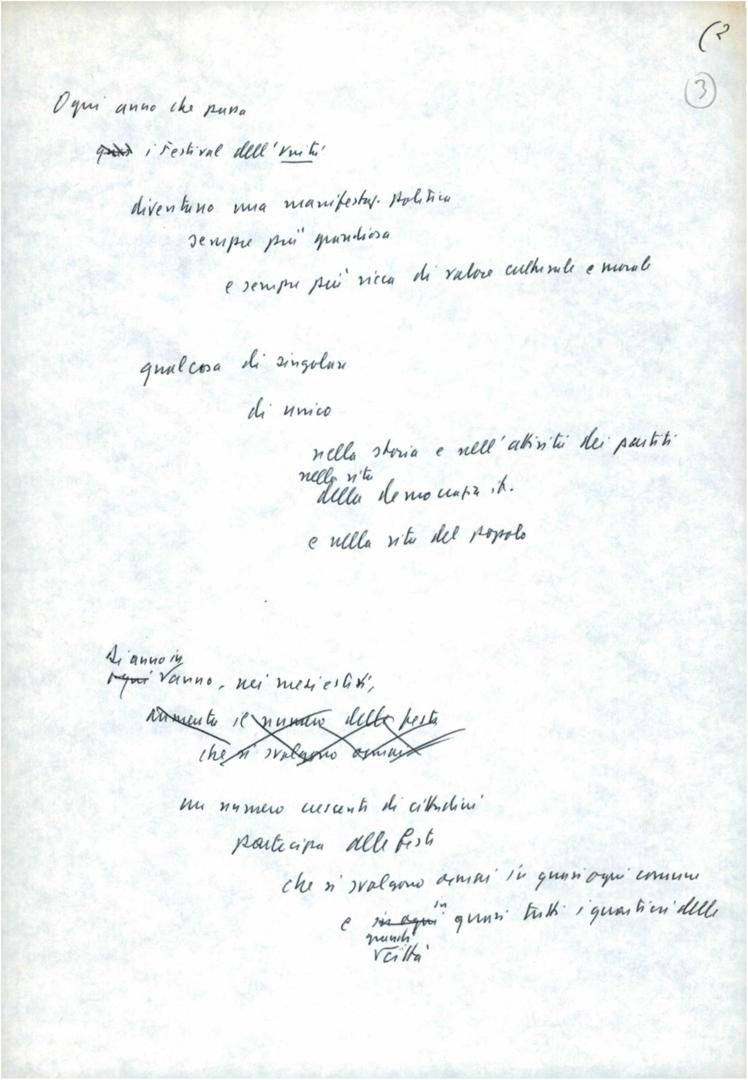 (2
3
Ogni anno che passa
i Festival dell'Unità
diventano una manifestaz. politica
sempre più grandiosa
e sempre più ricca di valore culturale e morale
qualcosa di singolare
di unico
nella storia e nell'attività dei partiti
nella vita
della democrazia it.
e nella vita del popolo
Di anno in
ogni anno, nei mesi estivi,
aumenta il numero delle feste
che si svolgono ormai
un numero crescente di cittadini
partecipa alle feste
che si svolgono ormai in quasi ogni comune
in
e in ogni quasi tutti i quartieri delle
grandi
città